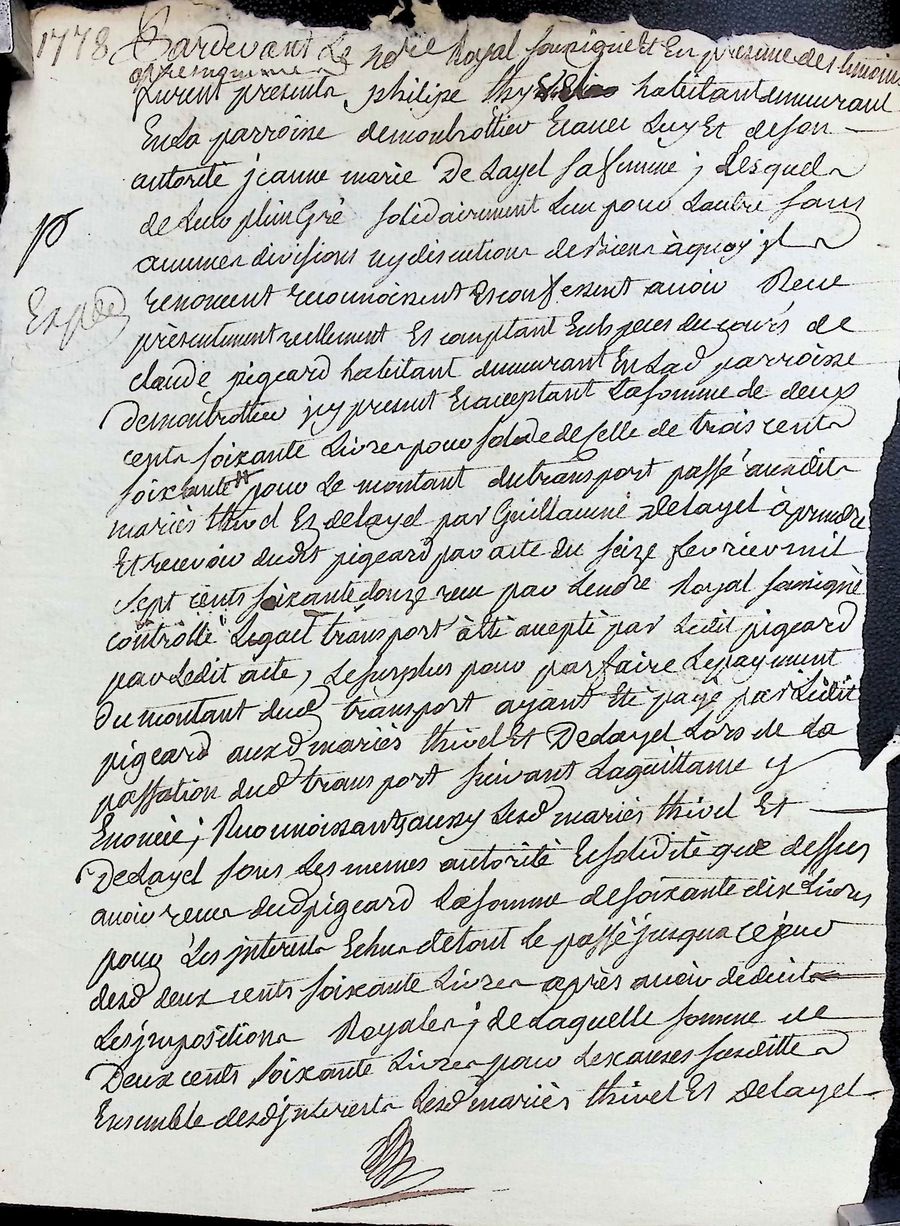 1778 Pardevant Le no.re Royal soussigné et En presence des temoins
apres nommes
furent presents philipe thivel habitant demeurant
En La parroisse demontrottier Et avec Luy Et deson
autorité jeanne marie DeLayel sa femme ; Lesquels
de Leur plein Gré solidairement L'un pour L'autre sans
aucunes divisions ny discutions de biens à quoy jls
renoncent reconnoissent Et confessent avoir Receu
présentement reellement Et comptant En Especes du cours de
claude pigeard habitant demeurant En Lad parroisse
Demontrottier jcy present Et acceptant La somme de deux
cents soixante Livres pour solde de selle de trois cents
soixante tt pour Le montant du transport passé auxdits
mariés thivel Et delayel par Guillaume Delayel à prendre
Et recevoir dudit pigeard par acte du seize fevrier mil
sept cents soixante douze receu par Le no.re Royal soussigné
controllé Lequel transport à été accepté par Ledit pigeard
par Ledit acte, Le surplus pour parfaire Le payement
Du montant dud transport ayant été payé par Ledit
pigeard auxd mariés thivel Et DeLayel Lors de La
passation dud transport suivant La quittance y
Enoncée ; Reconnoissants aussy Lesd mariés thivel Et
DeLayel sous Les memes autorité Et solidité que dessus
avoir receu dud pigeard La somme de soixante dix Livres
pour Les jnterests Echus de tout Le passé jusqua ce jour
desd deux cents soixante Livres après avoir deduit
Les jmpositions Royales ; de Laquelle somme de
Deux cents soixante Livres pour Les causes susdittes
Ensemble desd jnterests Lesd mariés thivel Et delayel
Exped